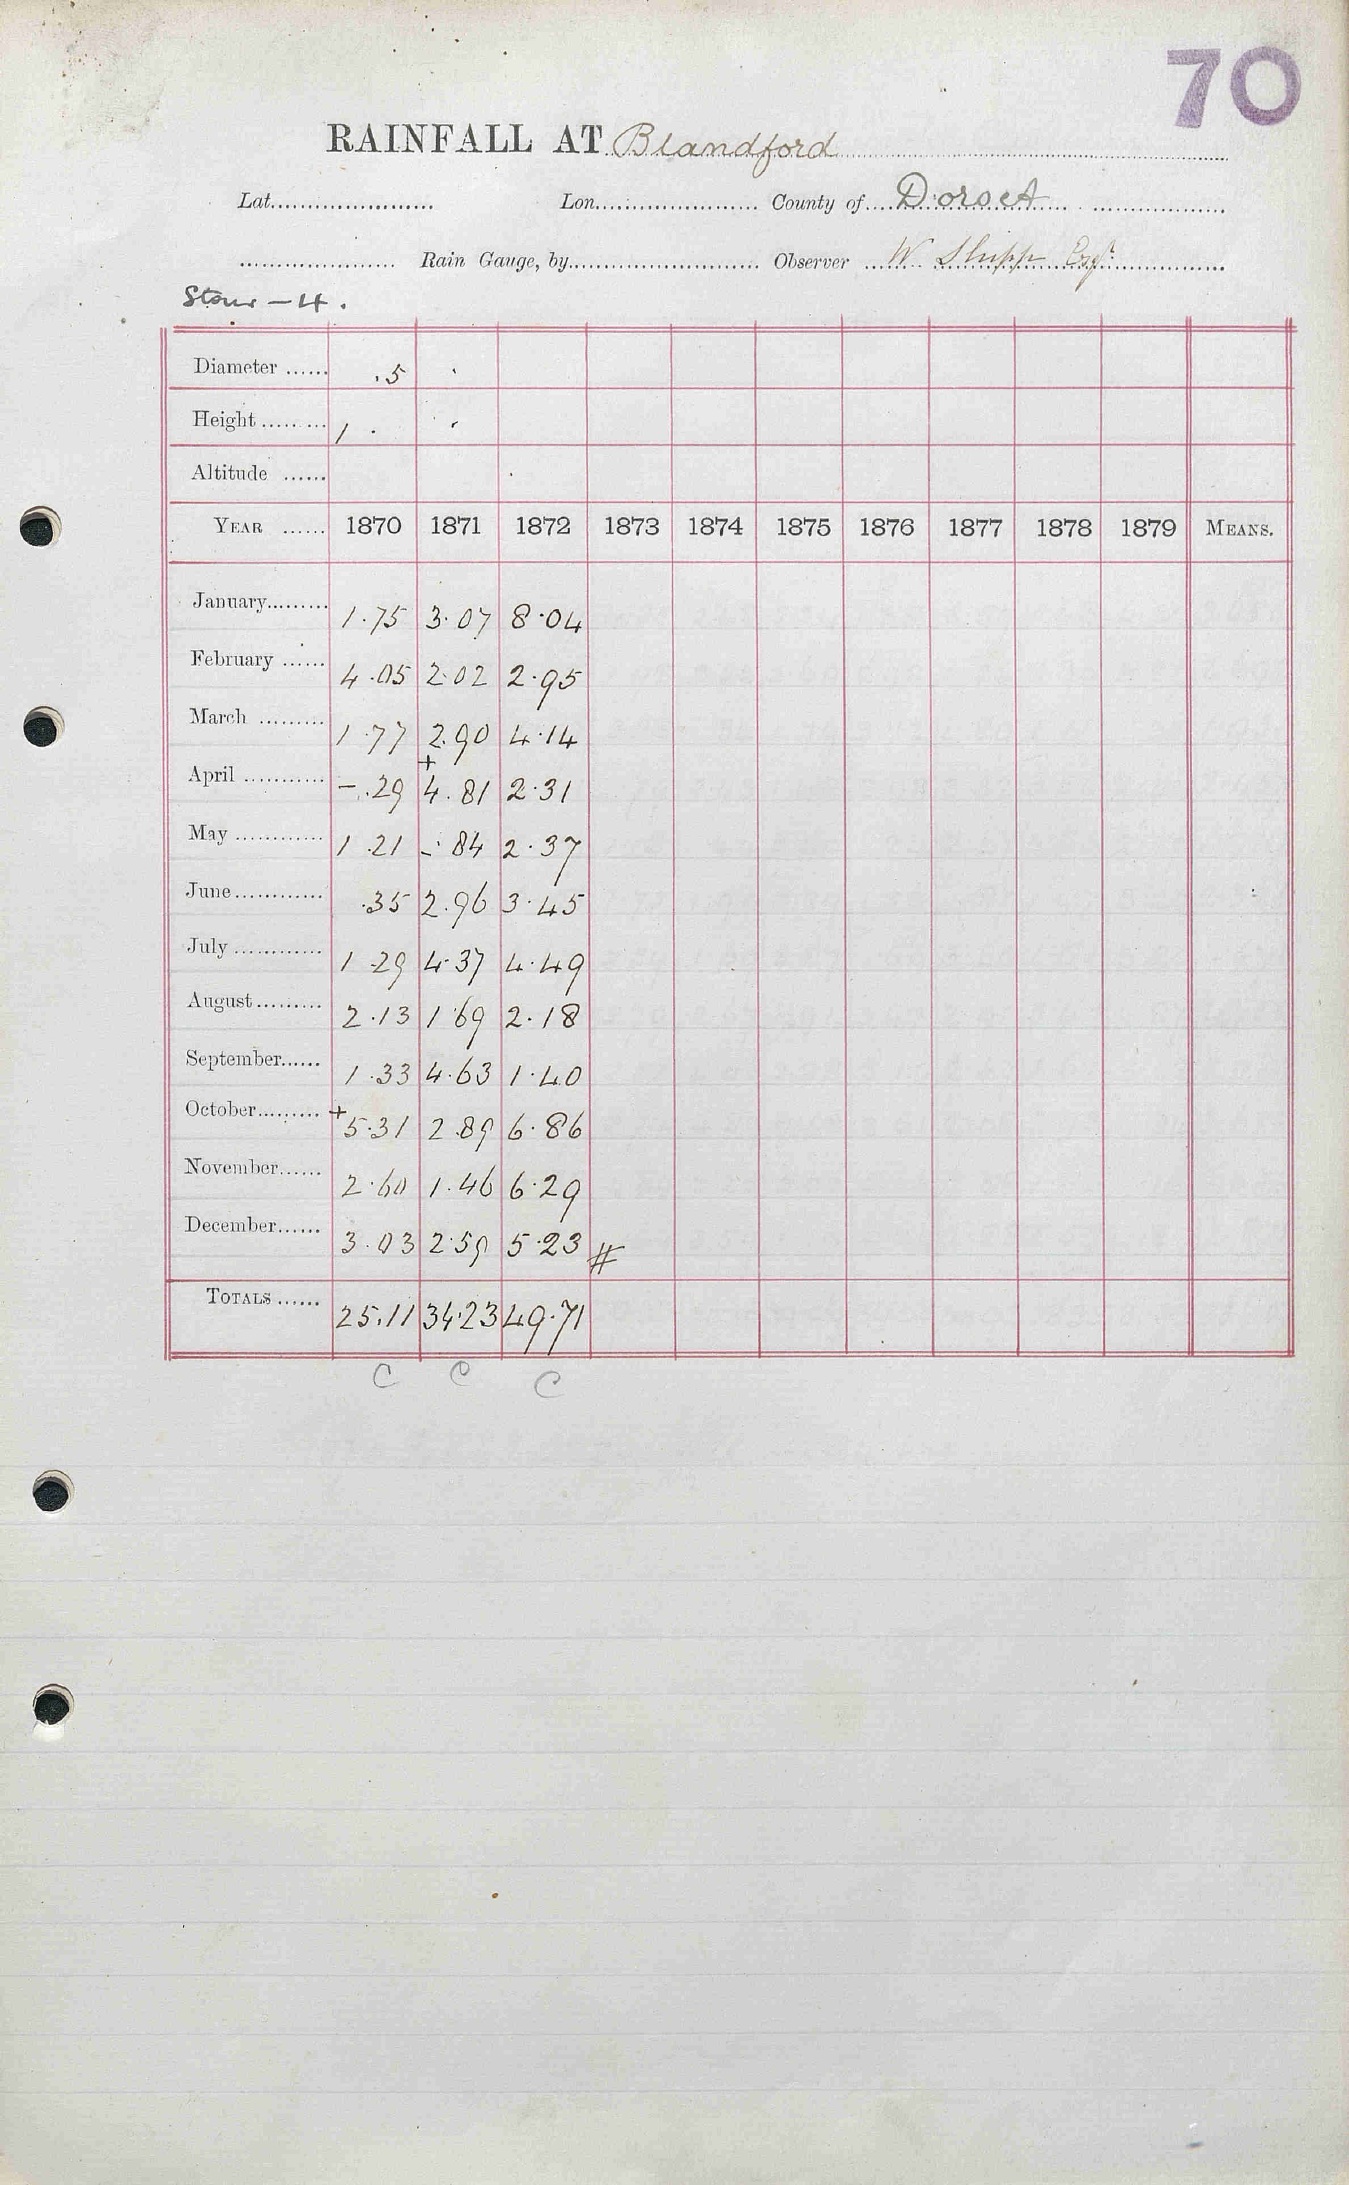 70
RAINFALL AT Blandford
Lat...................... Lon...................... County of.... Dorset
..................... Rain Gauge, by.......................... Observer W Shipp Esqr.
Stour - 4.
Diameter ...... .5
Height ......... 1 .
Altitude ......
YEAR ...... 1870 1871 1872 1873 1874 1875 1876 1877 1878 1879 MEANS.
January......... 1.75 3.07 8.04
February ...... 4.05 2.02 2.95
March ......... 1.77 2.90 4.14
April ........... - .29 + 4.81 2.31
May ............ 1.21 - .84 2.37
June............ .35 2.96 3.45
July ............ 1.29 4.37 4.49
August......... 2.13 1.69 2.18
September...... 1.33 4.63 1.40
October......... + 5.31 2.89 6.86
November...... 2.60 1.46 6.29
December...... 3.03 2.59 5.23 #
TOTALS ...... 25.11 34.23 49.71
C C C